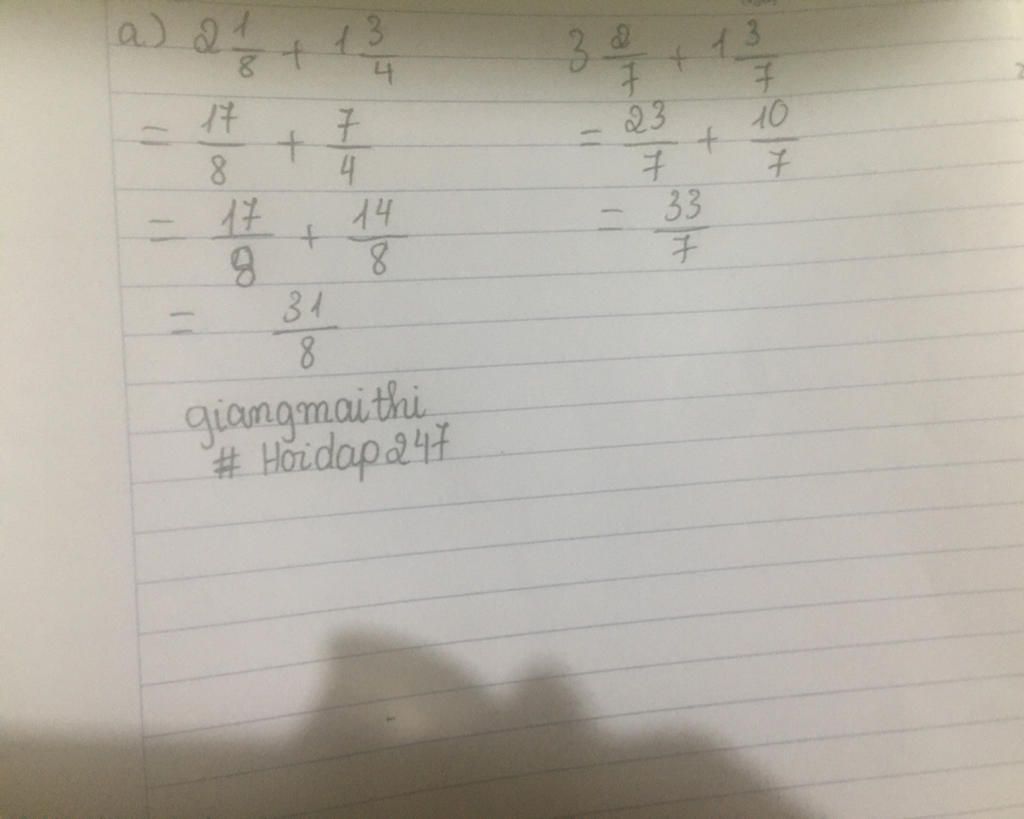 a) 2 1/8 + 1 3/4
= 17/8 + 7/4
= 17/8 + 14/8
= 31/8
3 2/7 + 1 3/7
= 23/7 + 10/7
= 33/7
giangmaithi
# Hoidap247